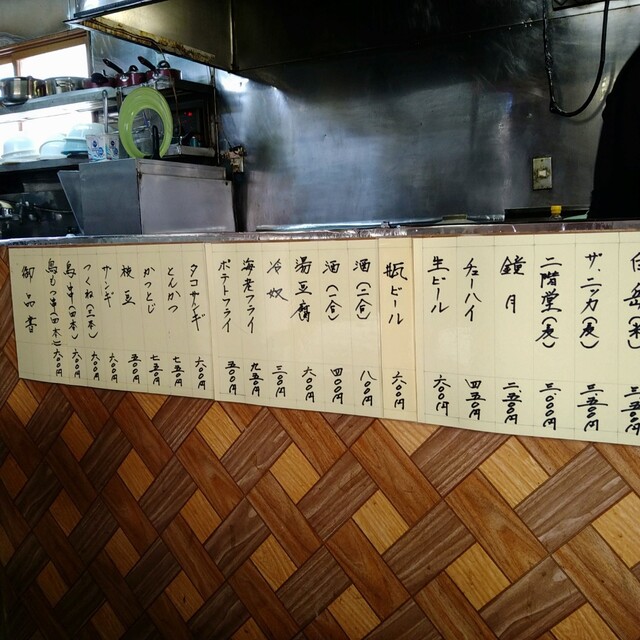 ザ・ニッカ(麦) 三五〇〇円
二階堂(麦) 三〇〇〇円
鏡月 二五〇〇円
チューハイ 四五〇円
生ビール 六〇〇円
瓶ビール 六〇〇円
酒(二合) 八〇〇円
酒(一合) 四〇〇円
湯豆腐 六〇〇円
冷奴 三〇〇円
海老フライ 九五〇円
ポテトフライ 五〇〇円
タコザンギ 六〇〇円
とんかつ 七五〇円
かつとじ 七五〇円
枝豆 五〇〇円
ザンギ 六〇〇円
つくね(二本) 六〇〇円
鳥串(四本) 六〇〇円
鳥もつ串(四本) 六〇〇円
御品書